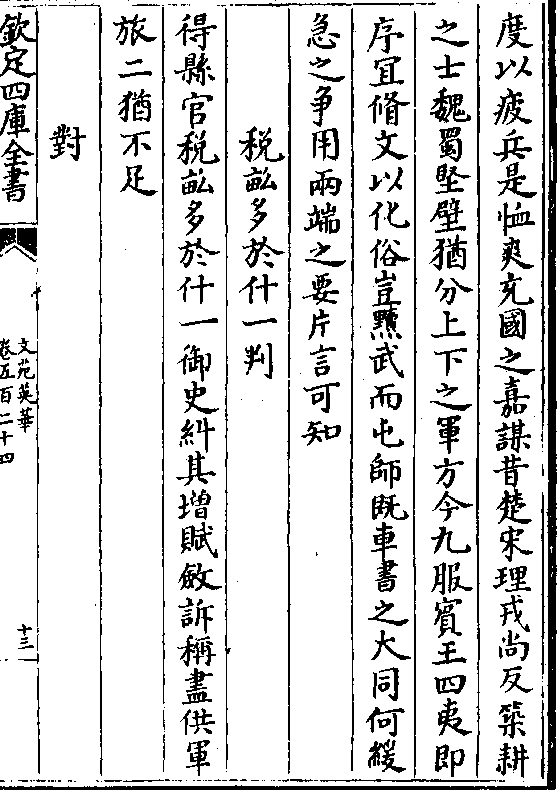 度以疲兵是恤爽充國之嘉謀昔楚宋理戎尚反築耕
之士魏蜀堅壁猶分上下之軍方今九服賓王四夷即
序宜脩文以化俗豈黷武而屯師既車書之大同何緩
急之爭用兩端之要片言可知
税畝多於什一判
得縣官税畝多於什一御史糾其增賦斂訴稱盡供軍
旅二猶不足
對
欽定四庫全書
文苑英華
卷五百二十四
十三